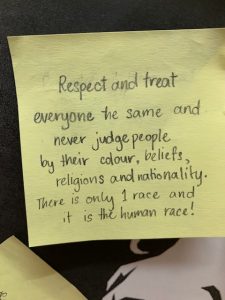 Respect and treat
everyone the same and
never judge people
by their colour, beliefs,
religions and nationality.
There is only 1 race and
it is the human race!